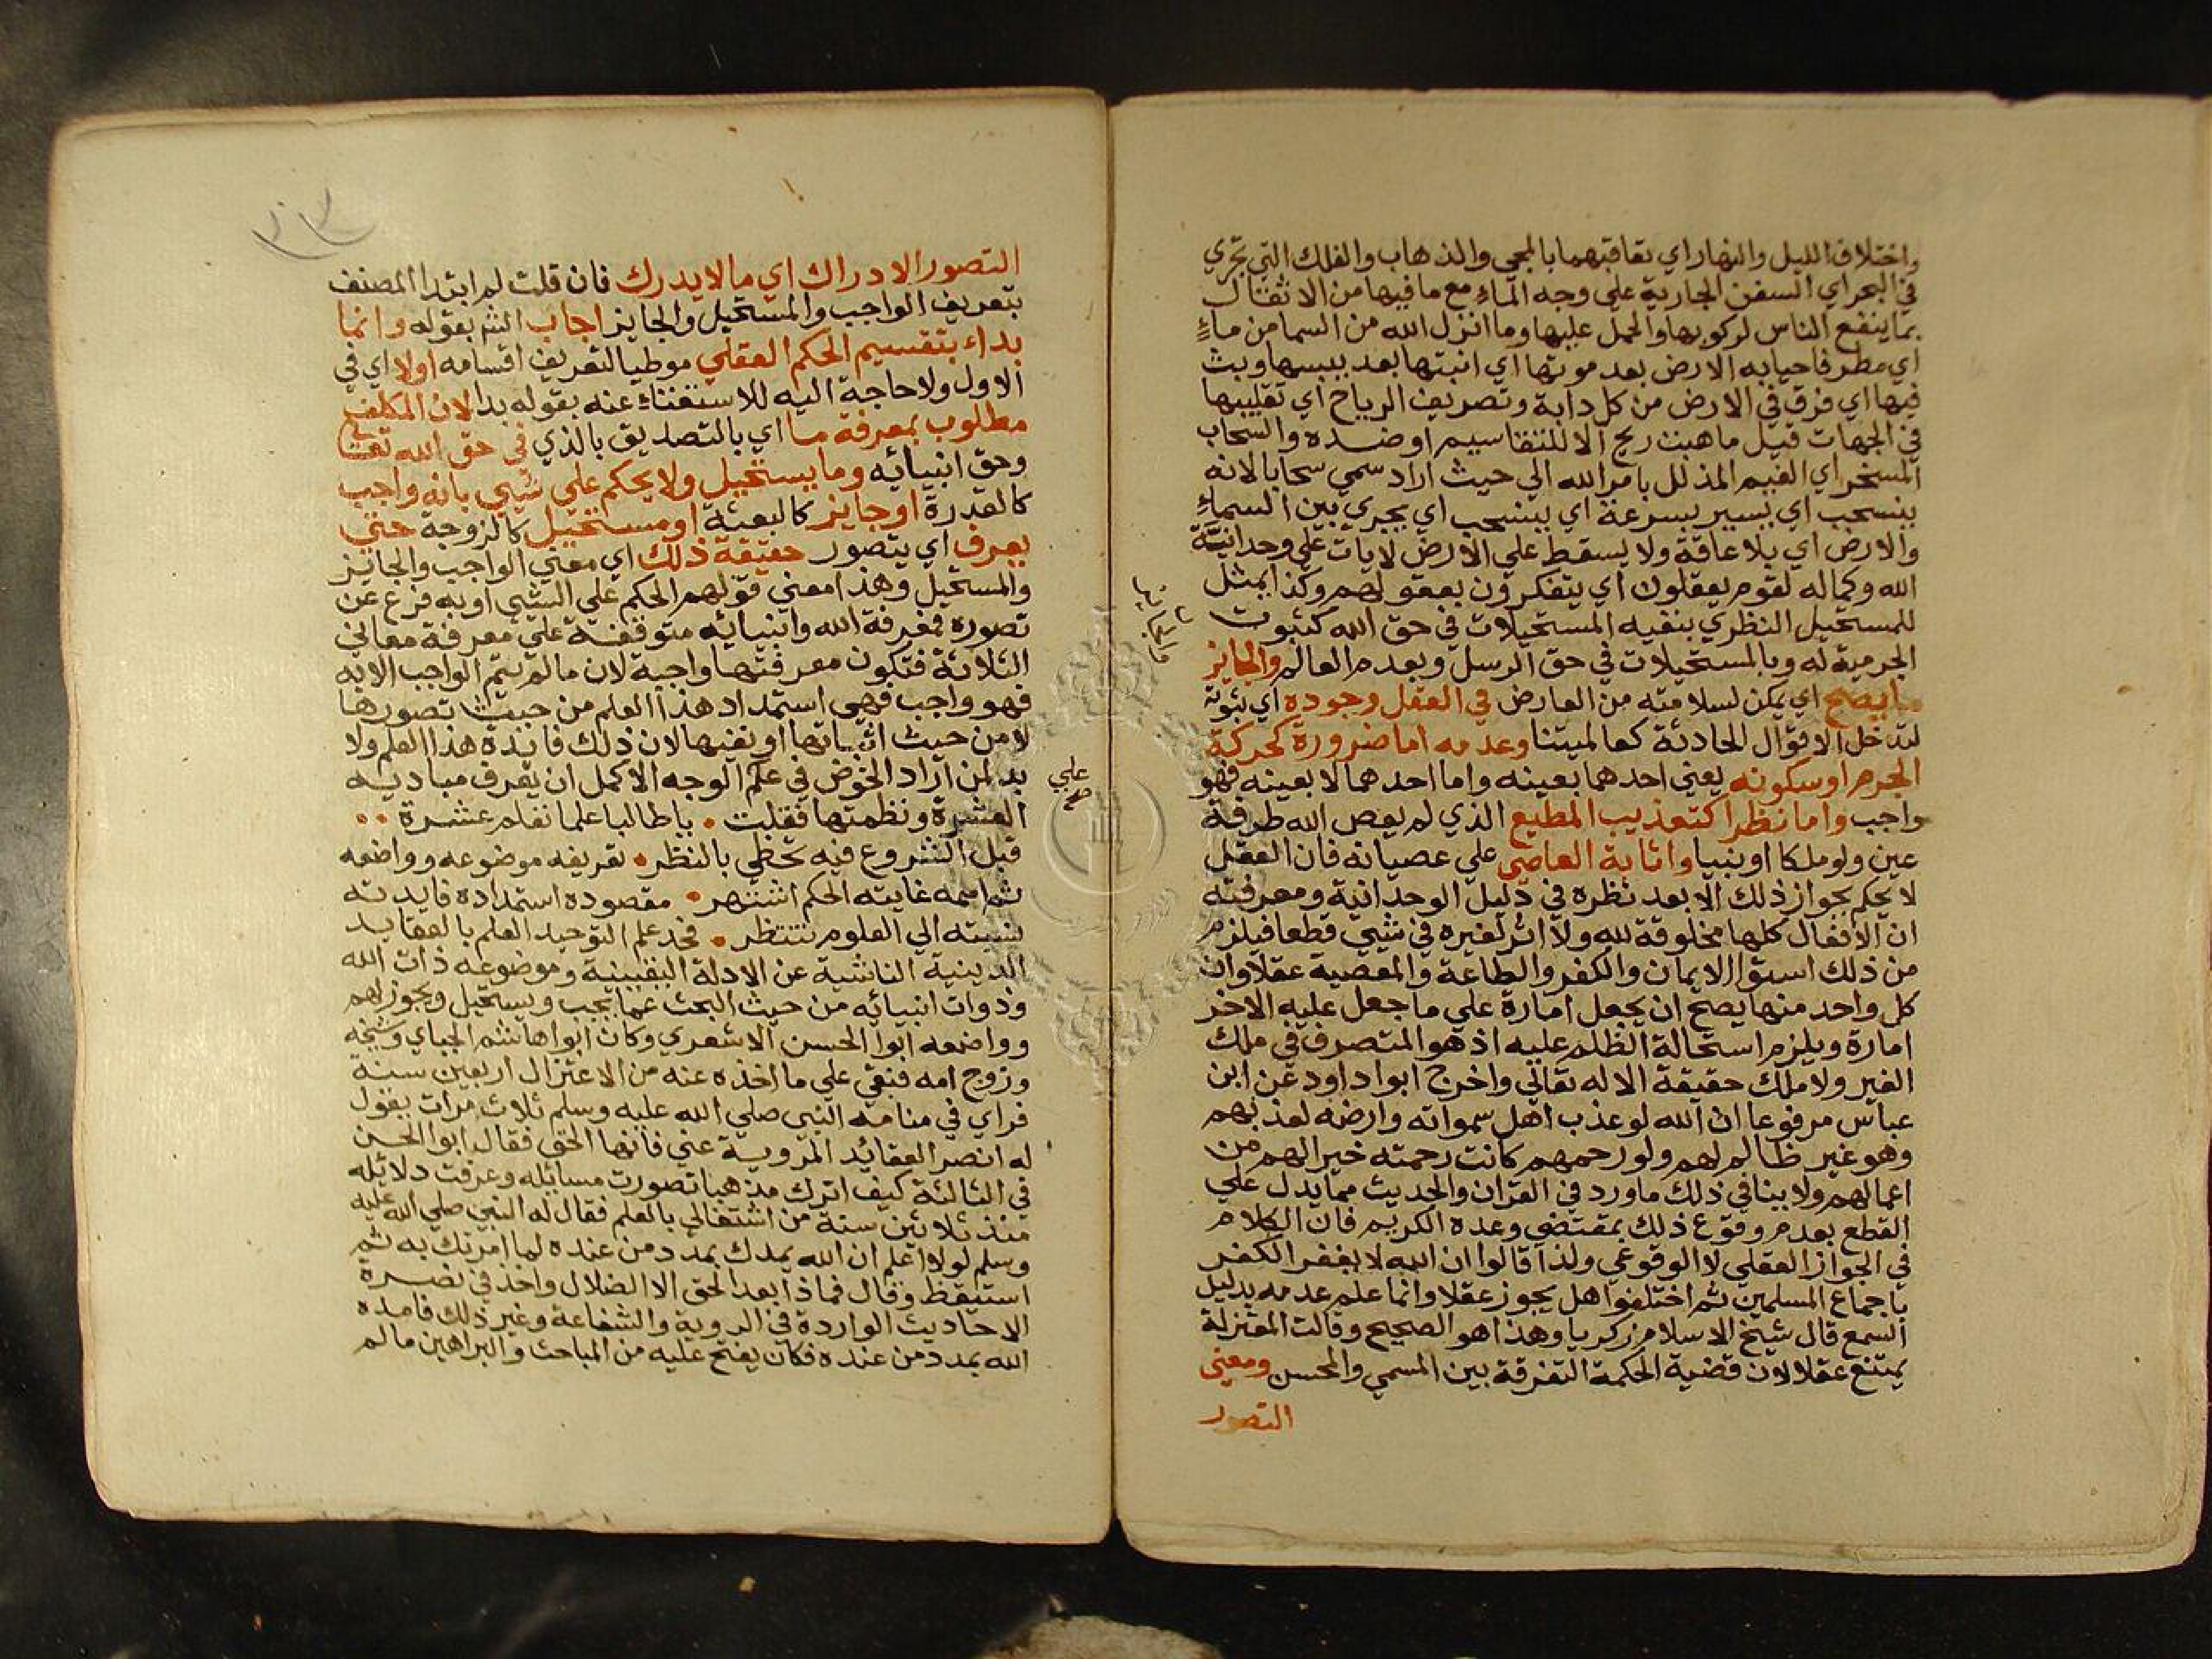 واختلاف الليل والنهار اي تعاقبهما بالمجي والذهاب والفلك التي تجري
في البحر اي السفن الجارية علي وجه الماء مع ما فيها من الاثقال
بما ينفع الناس لركوبها والحمل عليها وما انزل الله من السما من ماء
اي مطر فاحيا به الارض بعد موتها اي انبتها بعد يبسها وبث
فيها اي فرق في الارض من كل دابة وتصريف الرياح اي تقليبها
في الجهات قيل ما هبت ريح الا لشفا سقيم او ضده والسحاب
المسخر اي الغيم المذلل بامر الله الي حيث اراد سمي سحابا لانه
ينسحب اي يسير بسرعة اي ينسحب اي يجري بين السماء
والارض اي بلا عاقة ولا يسقط علي الارض لايات علي وحدانية
الله وكماله لقوم يعقلون اي يتفكرون بعقولهم وكذا يمثل
للمستحيل النظري بنفيه المستحيلات في حق الله كثبوت
الجرمية له وبالمستحيلات في حق الرسل وبعدم العالم والجايز
ما يصح اي يمكن لسلامته من العارض في العقل وجوده اي ثبوته
لتدخل الاقوال الحادثة كعالميتنا وعدمه اما ضرورة كحركة
الجرم او سكونه يعني احدهما بعينه واما احدهما لا بعينه فهو
واجب واما نظرا كتعذيب المطيع الذي لم يعص الله طرفة
عين ولو ملكا او نبيا واثابة العاصي علي عصيانه فان العقل
لا يحكم بجواز ذلك الا بعد نظره في دليل الوحدانية ومعرفته
ان الافعال كلها مخلوقة لله ولا اثر لغيره في شيي قطعا فيلزم
من ذلك استوا الايمان والكفر والطاعة والمعصية عقلا وان
كل واحد منها يصح ان يجعل امارة علي ما جعل عليه الاخر
امارة ويلزم استحالة الظلم عليه اذ هو المتصرف في ملك
الغير ولا ملك حقيقة الا له تعالي واخرج ابوا داود عن ابن
عباس مرفوعا ان الله لو عذب اهل سمواته وارضه لعذبهم
وهو غير ظالم لهم ولو رحمهم كانت رحمته خيرا لهم من
اعمالهم ولا ينافي ذلك ما ورد في القران والحديث مما يدل علي
القطع بعدم وقوع ذلك بمقتضي وعده الكريم فان الكلام
في الجواز العقلي لا الوقوعي ولذا قالوا ان الله لا يغفر الكفر
باجماع المسلمين ثم اختلفوا هل يجوز عقلا وانما علم عدمه بدليل
السمع قال شيخ الاسلام زكريا وهذا هو الصحيح وقالت المعتزلة
يمتنع عقلا لان قضية الحكمة التفرقة بين المسمي والمحسن ومعني
التصور
التصور الادراك اي ما لا يدرك فان قلت لم ابتدا المصنف
بتعريف الواجب والمستحيل والجايز اجاب الشم بقوله وانما
بداء بتقسيم الحكم العقلي موطيا لتعريف اقسامه اولا اي في
الاول ولا حاجة اليه للاستغناء عنه بقوله بدا لان المكلف
مطلوب بمعرفة ما اي بالتصديق بالذي في حق الله تعا
وحق انبيائه وما يستحيل ولا يحكم علي شيي بانه واجب
كالقدرة او جايز كالبعثة او مستحيل كالزوجة حتي
يعرف اي يتصور حقيقة ذلك اي معني الواجب والجايز
والمستحيل وهذا معني قولهم الحكم علي الشيي او به فرع عن
تصوره فمعرفة الله وانبيائه متوقفة علي معرفة معاني
الثلاثة فتكون معرفتها واجبة لان ما لم يتم الواجب الا به
فهو واجب فهي استمداد هذا العلم من حيث تصورها
لا من حيث اثباتها او نفيها لان ذلك فايدة هذا العلم ولا
بد لمن اراد الخوض في علم الوجه الاكمل ان يعرف مباديه
علي
صح
العشرة ونظمتها فقلت • يا طالبا علما نعلم عشرة ••
قبل الشروع فيه تحظي بالنظر • تعريفه موضوعه وواضعه
ثم اسمه غايته الحكم اشتهر • مقصوده استمداده فايدته
نسبته الي العلوم تنتظر • فحد علم التوحيد العلم بالعقايد
الدينية الناشية عن الادلة اليقينية وموضوعه ذات الله
وذوات انبيائه من حيث البحث عما يجب ويستحيل ويجوز لهم
وواضعه ابوا الحسن الاشعري وكان ابوا هاشم الجباي وشيخه
وزوج امه فنقي علي ما اخذه عنه من الاعتزال اربعين سنة
فراي في منامه النبي صلي الله عليه وسلم ثلاث مرات يقول
له انصر العقائد المروية عني فانها الحق فقال ابوا الحسن
في الثالثة كيف اترك مذهبا تصورت مسائله وعرفت دلائله
منذ ثلاثين سنة من اشتغالي بالعلم فقال له النبي صلي الله عليه
وسلم لولا اعلم ان الله يمدك بمدد من عنده لما امرتك به ثم
استيقظ وقال فماذا بعد الحق الا الضلال واخذ في نصرة
الاحاديث الواردة في الروية والشفاعة وغير ذلك فامده
الله بمدد من عنده فكان يفتح عليه من المباحث والبراهين ما لم